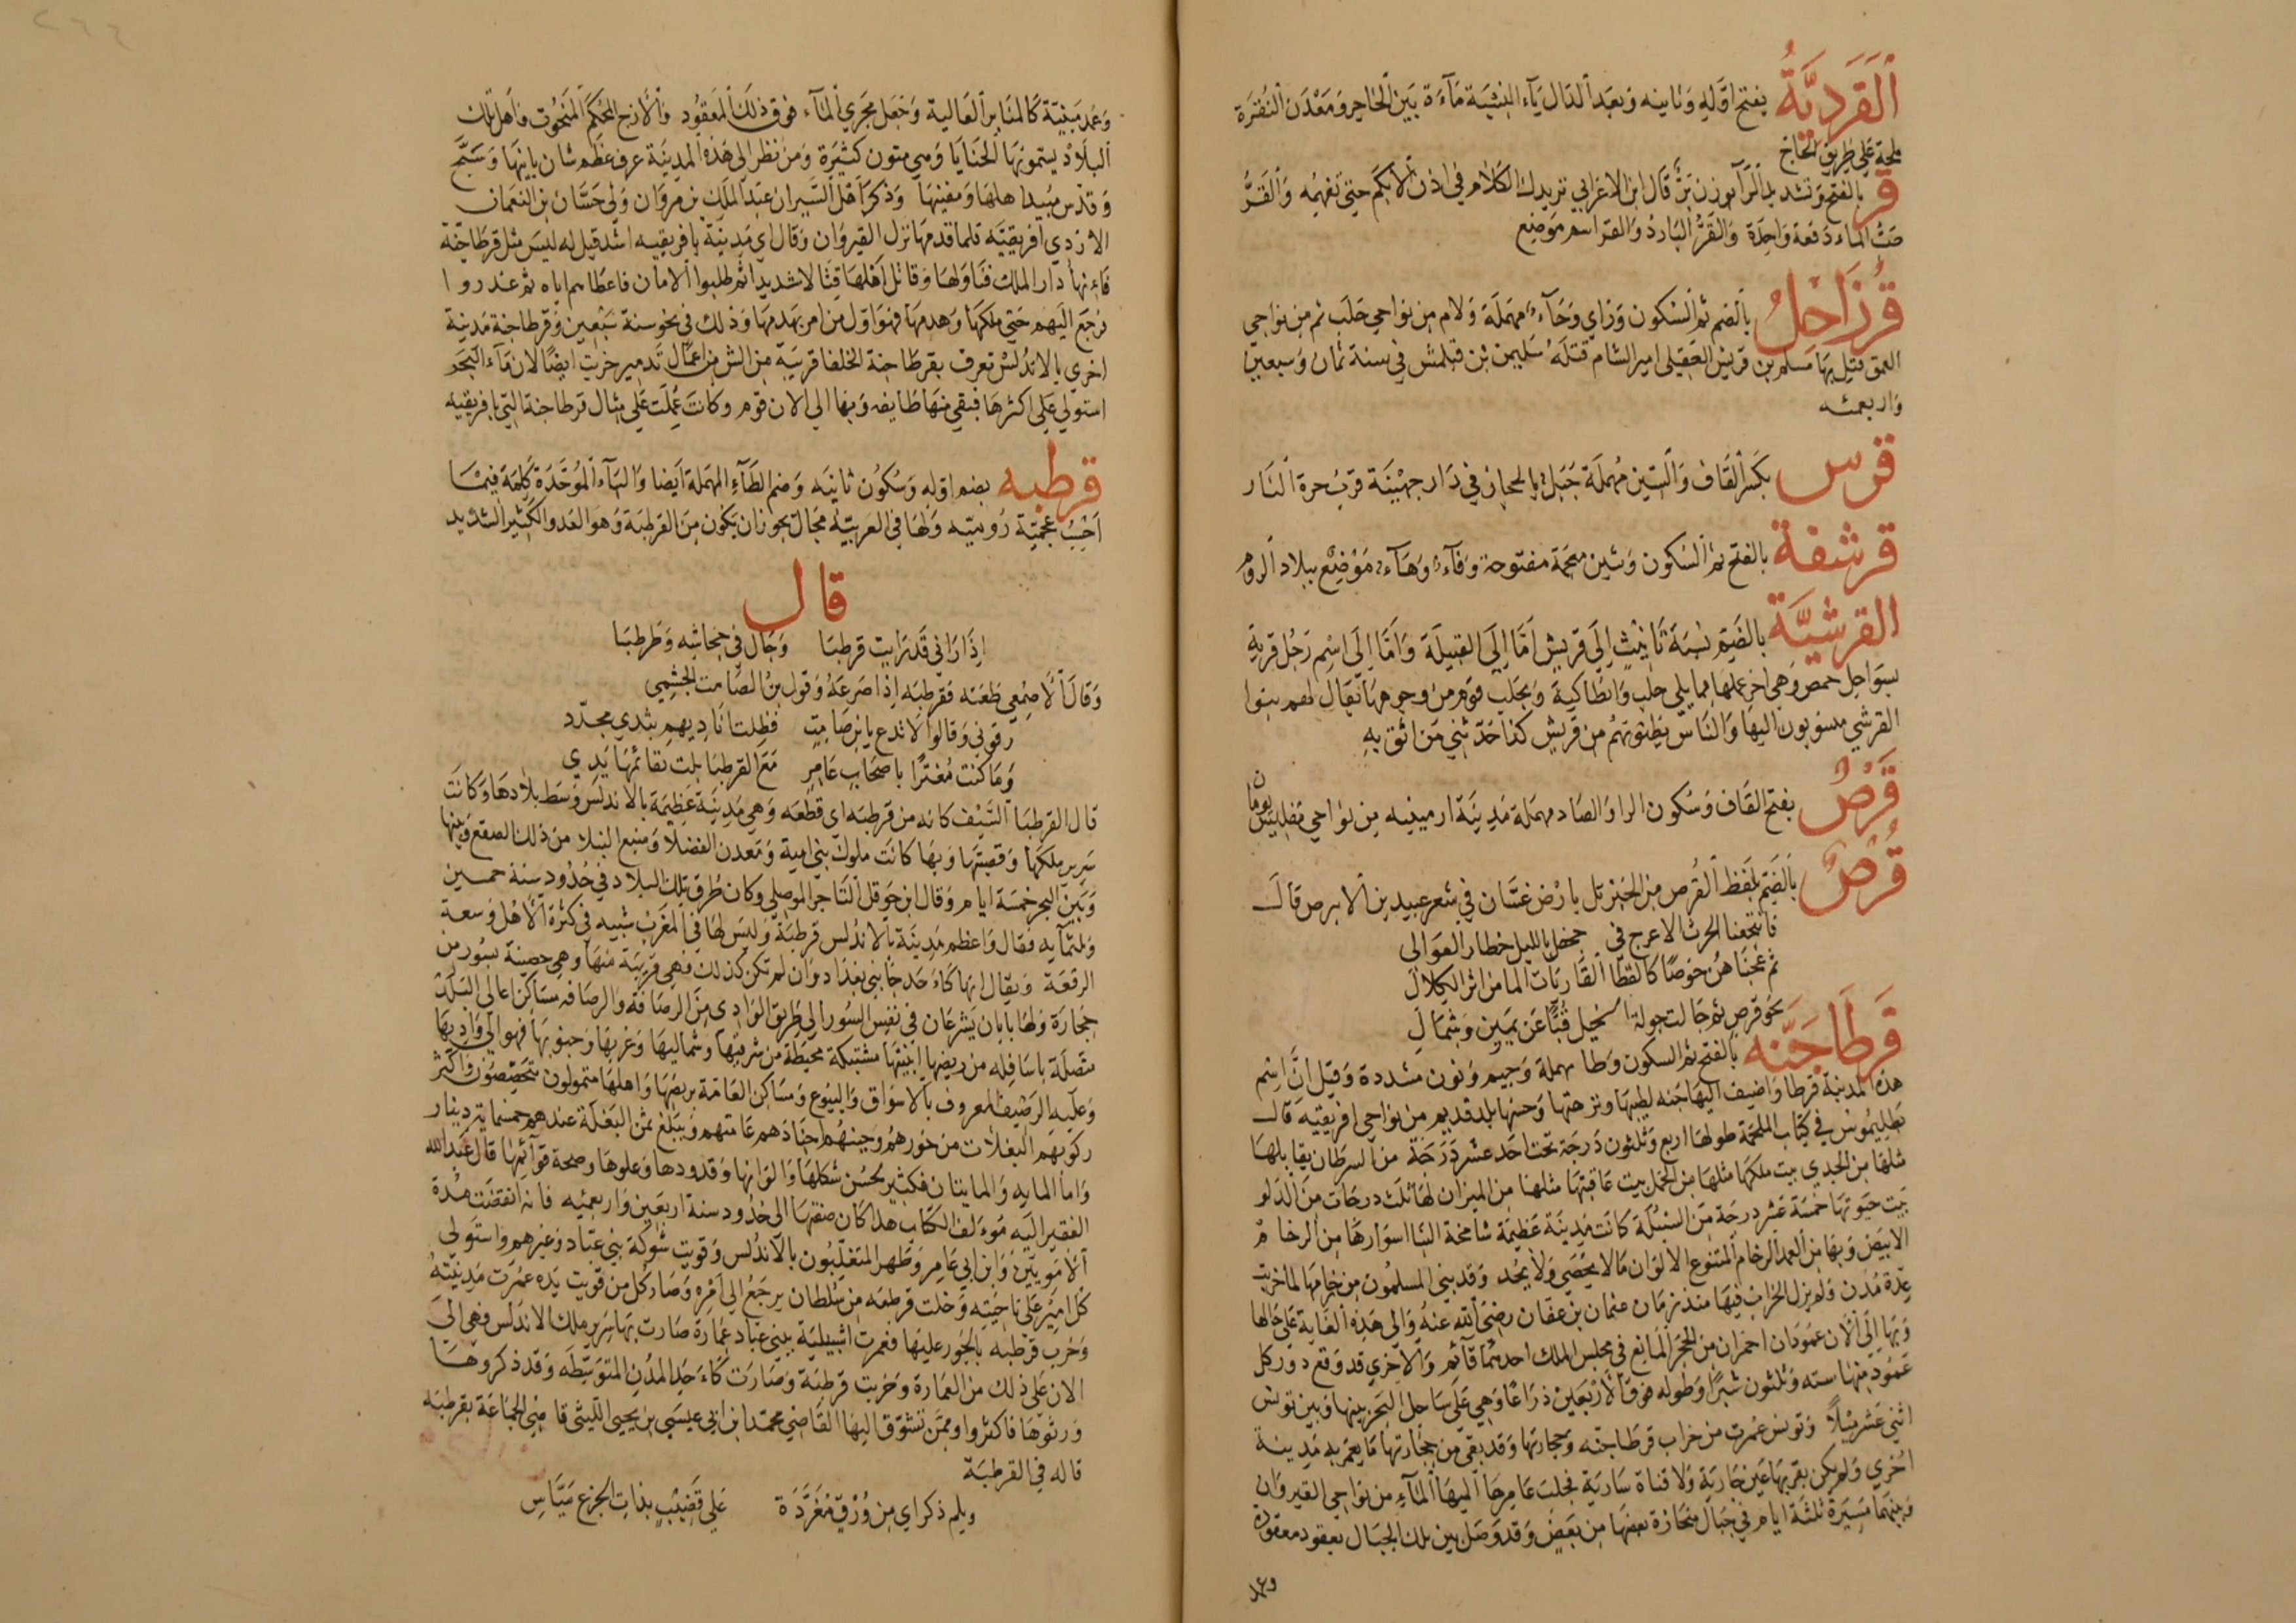 ٱلقَرَدِيَّةُ بفتح اوّله وثانيه وبعد الدال ياء النسبة ماءة بين الحاجر ومعدن النقرة
ملحة على طريق الحاج
قر بالفتح وتشديد الرآ بوزن بَرّ قال ابن الاعرابي ترديدك الكلام في اذن الابكم حتى تفهمه والقرُّ
صبّ الماء دفعة واحدة والقرُّ البارد والقر اسم موضع
قُرزَاحِلُ بالضم ثم السكون وزاي وحآء مهملة ولام من نواحي حلب ثم من نواحي
العمق قتل بها مسلم بن قريش العقيلى امير الشام قتله سليمن بن قتلمش في سنة ثمان وسبعين
واربعمئه
قرس بكسر القاف والسين مهملة جبل بالحجاز في دار جهينة قرب حرة النار
قرشفة بالفتح ثم السكون وشين معجمة مفتوحة وفآء وهآء موضع ببلاد الروم
القرشيَّة بالضم نسبة تانيث الى قريش امّا الى القبيلة وامّا الى اسم رجل قرية
بسواحل حمص وهي اخر عملها مما يلي حلب وانطاكية وبحلب قوم من وجوهها يقال لهم بنوا
القرشي منسوبون اليها والناس يظنونهم من قريش كذا حدّثني من اثق به
قَرصٌ بفتح القاف وسكون الرا والصاد مهملة مدينة ارمينيه من نواحي تفليس
قُرصٌ بالضم بلفظ القرص من الخبز تل بارض غسّان في شعر عبيد بن الابرص قال
فانتجعنا الحرث الاعرج في جحفل بالليل خطار العوالى
ثم عجناهن خوصًا كالقطا القاربات الما من اثر الكلال
نحو قرص ثم جالت جولة الخيل قُبًّا عن يمين وشمال
قَرطَاجَنَّه بالفتح ثم السكون وطا مهملة وجيم ونون مشددة وقيل ان اسم
هذه المدينة قرطا واضيف اليها جنه لطيبها ونزهتها وحسنها بلد قديم من نواحي افريقيه قال
بطليموس في كتاب الملحمة طولها اربع وثلثون درجة تحت احد عشر درجة من السرطان يقابلها
مثلها من الجدي بيت ملكها مثلها من الحمل بيت عاقبتها مثلها من الميزان لها ثلث درجات من الدلو
بيت حيوتها خمسة عشر درجة من السنبلة كانت مدينة عظيمة شامخة البنا اسوارها من الرخام
الابيض وبها من العمد الرخام المتنوع الالوان مالا يحصى ولا يحد وقد بنى المسلمون من رخامها لما خربت
عدّة مدن ولم يزل الخراب فيها منذ زمان عثمان بن عفان رضي الله عنه والى هذه الغاية على حالها
وبها الى الان عمودان احمران من الحجر المانع في مجلس الملك احدهما قآئم والاخرى قد وقع دور كل
عمود منها سته وثلثون شبرًا وطوله فوق الاربعين ذراعًا وهي على ساحل البحر بينها وبين تونس
اثني عشر ميلاً وتونس عمرت من خراب قرطاجنه وحجارتها وقد بقى من حجارتها ما يعمر به مدينة
اخرى ولم يكن بقربها عين جارية ولا قناة سارية فجلب عامرها اليها المآء من نواحي القيروان
وبينهما مسيرة ثلثة ايام في جبال منحازة بعضها من بعض وقد وصل بين تلك الجبال بعقود معقودة
وعمد
وعمد مبنيّة كالمناير العالية وجعل مجرى المآء فوق ذلك المعقود والازج المحكم المنحوت واهل تلك
البلاد يسمونها الحنايا وهي مئون كثيرة ومن نظر الى هذه المدينة عرف عظم شان بانيها وسبّح
وقدّس مبيد اهلها ومفنيها وذكر اهل السير ان عبد الملك بن مروان ولى حسّان بن النعمان
الازدي افريقيّه فلما قدمها نزل القيروان وقال اي مدينة بافريقيه اشد قيل له ليس مثل قرطاجنّة
فانها دار الملك فناولها وقاتل اهلها قتالا شديدا ثم طلبوا الامان فاعطاهم اياه ثم غدروا
فرجع اليهم حتى ملكها وهدمها فهو اول من امر بهدمها وذلك في نحو سنة سبعين وقرطاجنة مدينة
اخرى بالاندلس تعرف بقرطاجنة الخلفا قريبة من الش من اعمال تدمير خربت ايضًا لان مآء البحر
استولى على اكثرها فبقى منها طايفه وبها الى الان قوم وكانت عملت على مثال قرطاجنة التي بافريقيه
قرطبه بضم اوله وسكون ثانيه وضم الطآء المهملة ايضا والبآء الموحّدة كلمة فيما
احسب عجميّة روميّه ولها في العربيّة مجال يجوز ان يكون من القرطبة وهو العدو الكثير الشديد
قال
اذا رانى قد رايت قرطبا وجال في جحاشه وطرطبا
وقال الاصمعي طعنه فقرطبه اذا صرعهُ وقول بن الصّامت الجشمي
رقونى وقالوا لاتدع يابن صامت فظلت ناديهم بثدي مجدّد
وما كنت مغترًا باصحاب عامر مع القرطبا بلت بقائمها يدي
قال القرطبا السّيف كانه من قرطبه اى قطعه وهي مدينة عظيمة بالاندلس وسط بلادها وكانت
سرير ملكها وقصبتها وبها كانت ملوك بني امية ومعدن الفضلا ومنبع النبلا من ذلك الصقع وبينها
وبين البحر خمسة ايام وقال ابن حوقل التاجر الموصلي وكان طرق تلك البلاد في حدود سنة خمسين
وثلثمآيه فقال واعظم مدينة بالاندلس قرطبة وليس لها في المغرب شبيه في كثرة الاهل وسعة
الرقعة ويقال انها كاءحد جانبى بغداد وان لم تكن كذلك فهي قريبة منها وهي حصينة بسور من
حجارة ولها بابان يشرعان في نفس السور الى طريق الوادى من الرصافة والرصافه مساكن اعالى البلد
متصلة باسافله من ربضها ابنيتها مشتبكة محيطة من شرقيها وشماليها وغربها وجنوبها فهو الى واديها
وعليه الرصيف المعروف بالاسواق والبيوع ومساكن العامّة بربضها واهلها متمولون متخصصون واكثر
ركوبهم البغلات من خورهم وجبنهم اجنادهم عامتهم ويبلغ ثمن البغلة عندهم خمسماية دينار
واما المايه والمايتان فكثير لحسن شكلها والوانها وقدودها وعلوها وصحة قوآئمها قال عبد الله
الفقير اليه مؤلف الكتاب هذا كان صفتها الى حدود سنة اربعين واربعميه فانه انقضت مدة
الامويين وابن ابي عامر وظهر المتغلبون بالاندلس وقويت شوكة بني عباد وغيرهم واستولى
كل امير على ناحيته وخلت قرطبه من سلطان يرجع الى امره وصار كل من قويت يده عمرت مدينته
وخرب قرطبه بالجور عليها فعمرت اشبيلية ببنى عباد عمارة صارت بها سرير ملك الاندلس فهي الى
الان على ذلك من العمارة وخربت قرطبة وصارت كاءحد المدن المتوسّطه وقد ذكروها
ورثوها فاكثروا وممن تشوّق اليها القاضي محمد ابن ابي عيسى بن يحيى الليثى قاضي الجماعة بقرطبه
قاله في القرطبة
ويلم ذكراي من وُرْقٍ مغرّدَة على قضيب بذات الجزع ميّاس